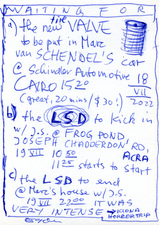 WAITING FOR
a) the new tire VALVE
to be put in Marc
van SCHENDEL'S car
@ Schindler Automotive 18
CAIRO 1520 VII
(great, 20 mins/$30!) 2022
b) the LSD to kick in
w/ J.S. @ FROG POND
JOSEPH CHADDERDON RD,
19 VII 1050 ACRA
1125 starts to start
c) the LSD to end
@ Marc's house w/ J.S.
19 VII 2200 IT WAS
VERY INTENSE → KIONA
HORROR TRIP